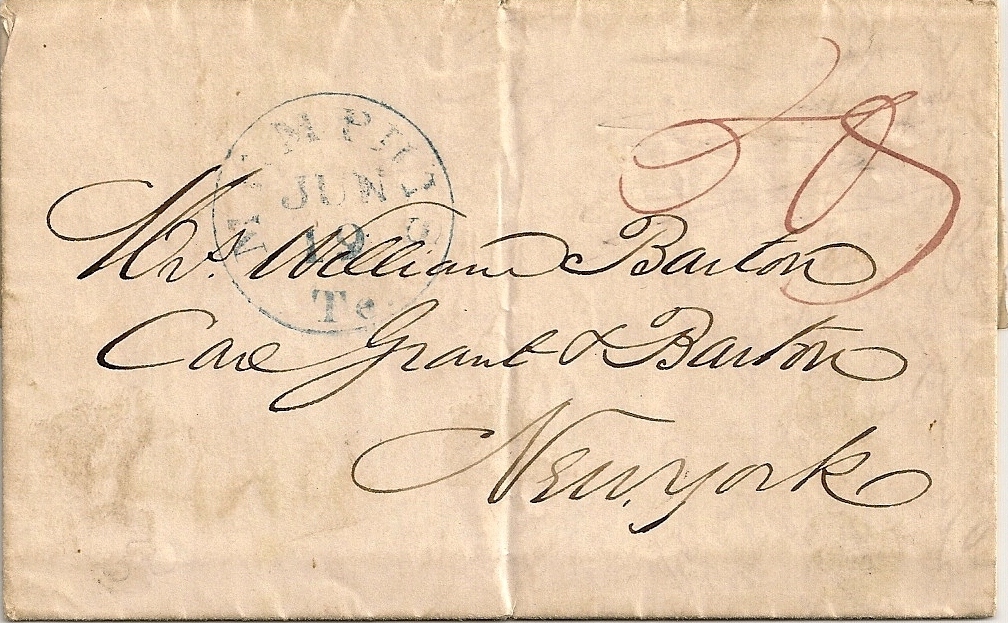 MEMPHIS
JUN
19
Te
Mrs. William Barton
Care Grant & Barton
New york